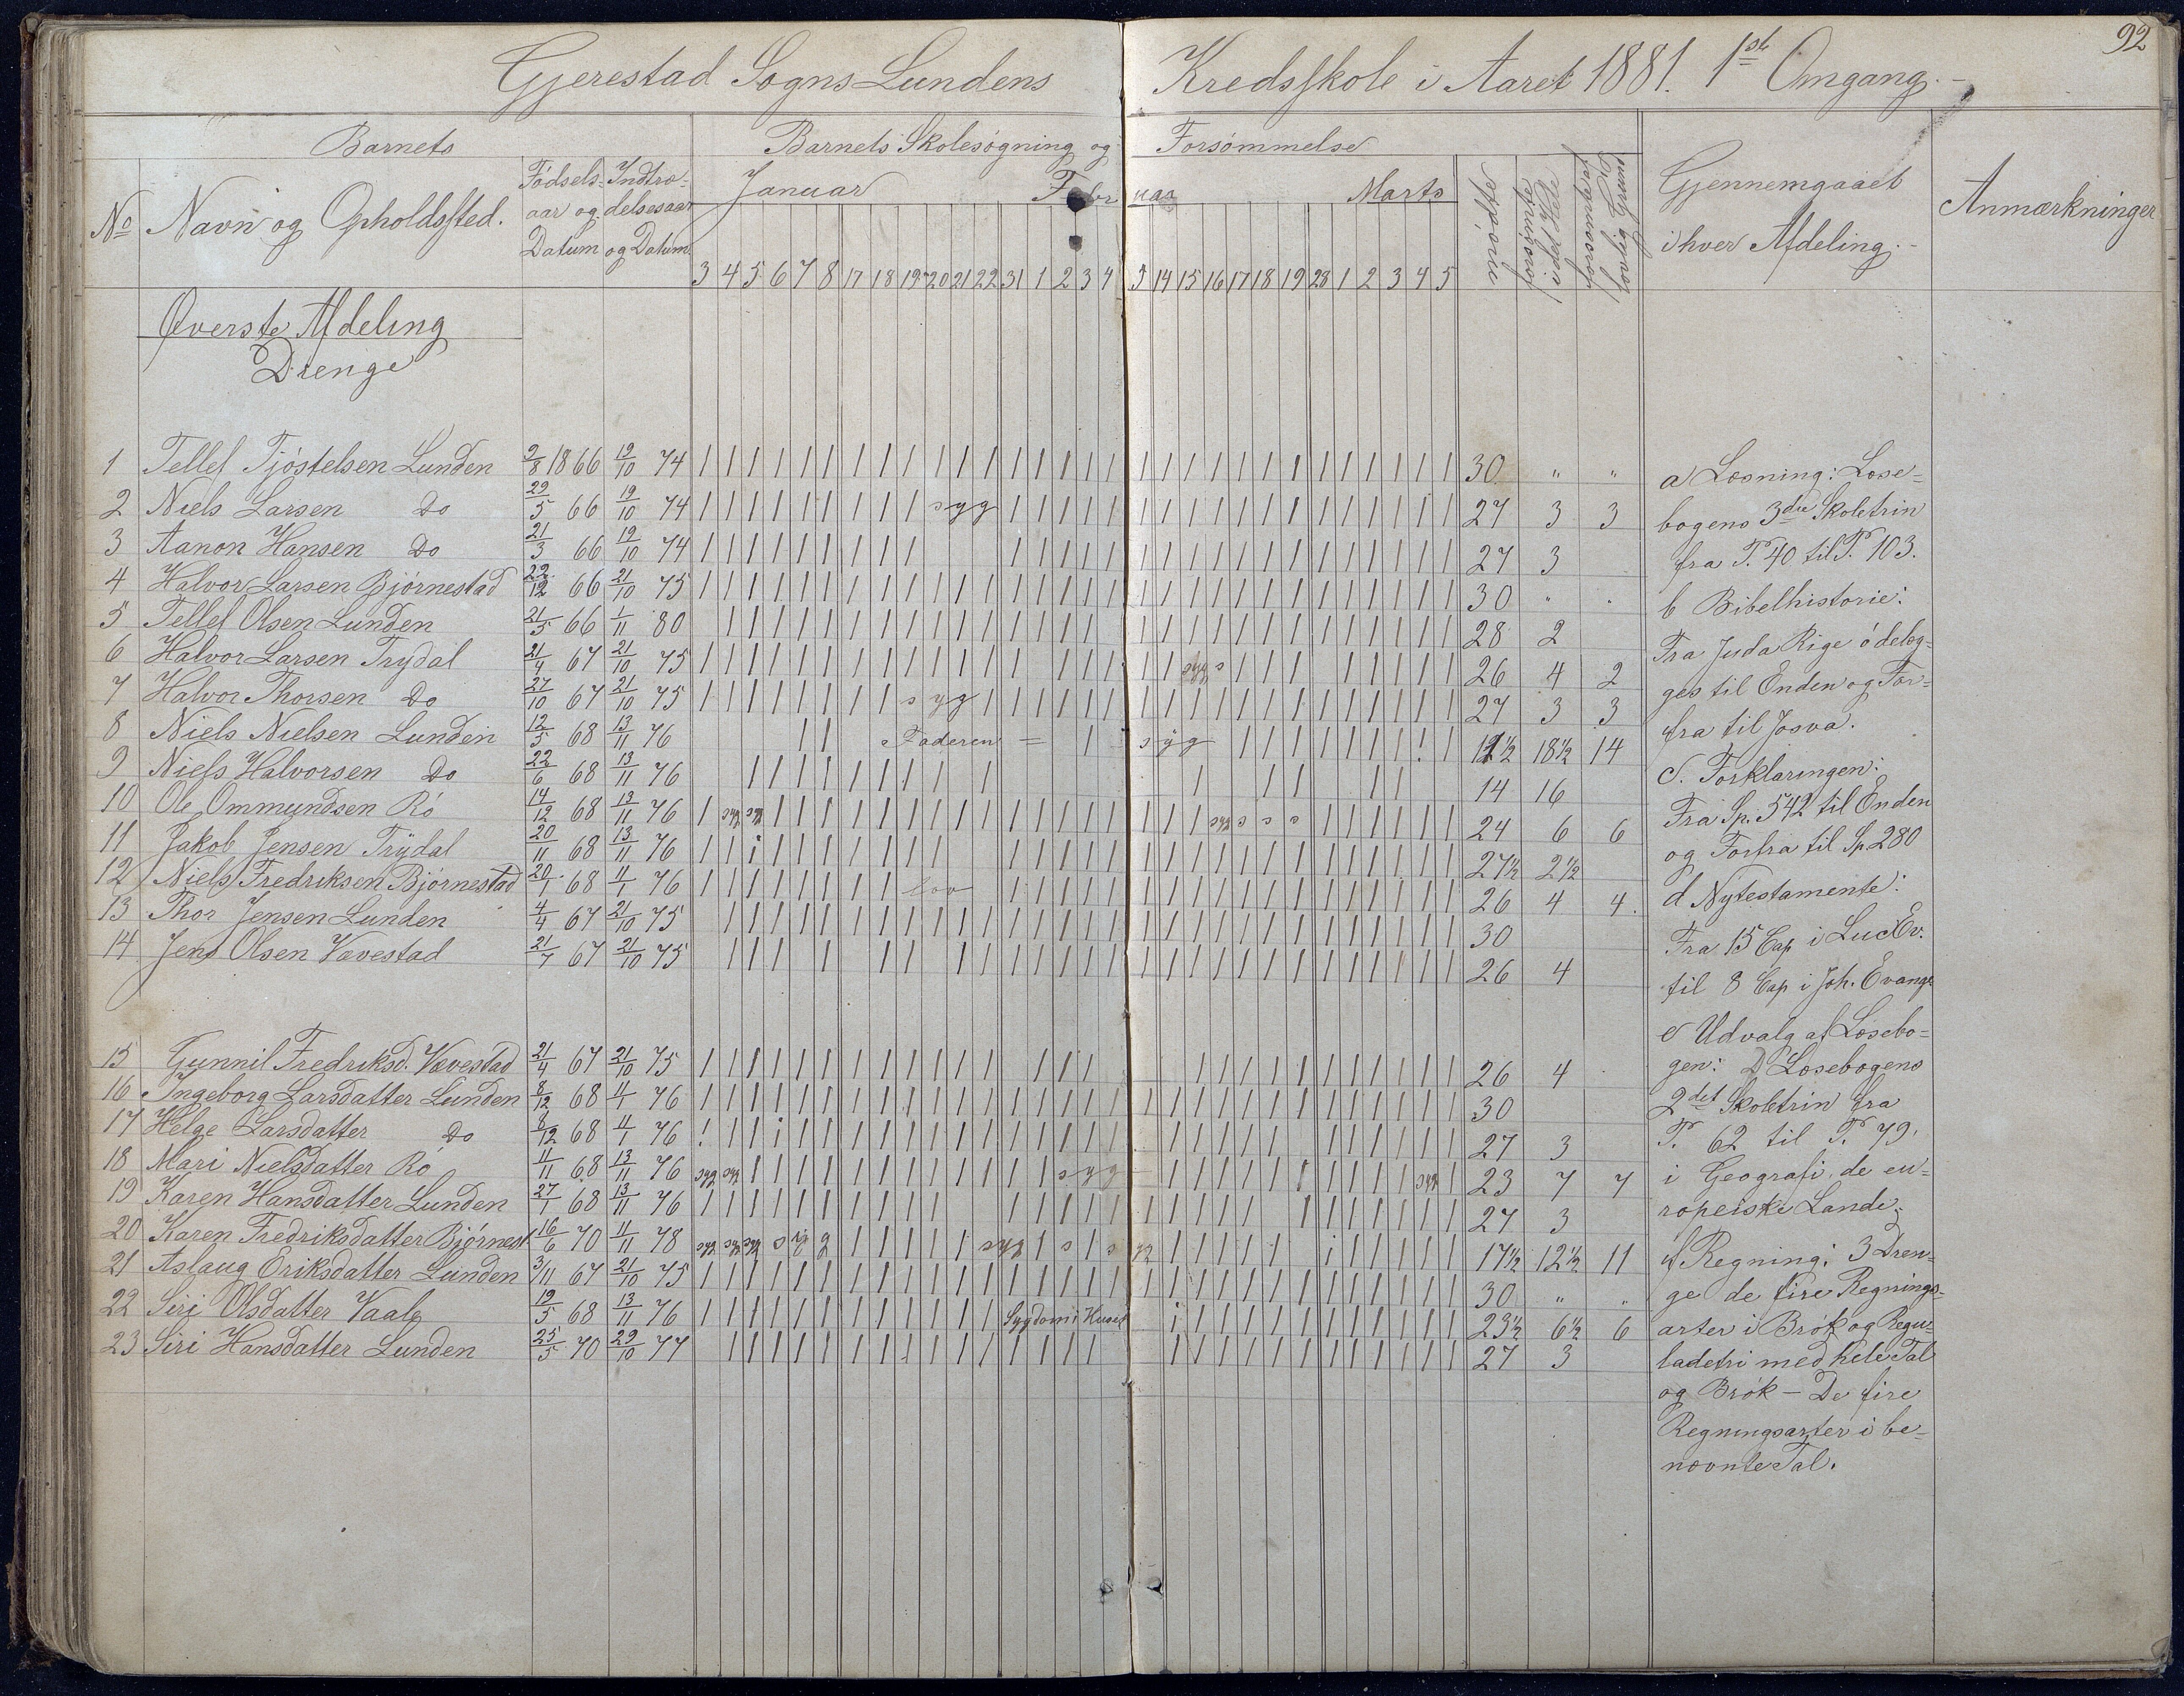 92
Gjerestad Sogns Lundens Kredsskole i Aaret 1881. 1ste Omgang.
Barnets
Barnets Skolesøgning og Forsømmelse
No
Navn og Opholdssted.
Fødsels= aar og Datum
Indtræ= delsesaar og Datum
Januar Februar Marts
3 4 5 6 7 8 17 18 19 20 21 22 31 1 2 3 4 5 14 15 16 17 18 19 28 1 2 3 4 5
Gjennemgaaet
i hver Afdeling.
Anmærkninger
Øverste Afdeling
Drenge
1 Tellef Tjøstelsen Lunden 9/8 1866 19/10 74 30 " "
2 Niels Larsen Do 29/5 66 19/10 74 syg 27 3 3
3 Aanon Hansen Do 21/3 66 19/10 74 27 3
4 Halvor Larsen Bjørnestad 22/12 66 21/10 75 30 " "
5 Tellef Olsen Lunden 21/5 66 1/11 80 28 2
6 Halvor Larsen Trydal 21/4 67 21/10 75 syg s 26 4 2
7 Halvor Thorsen Do 27/10 67 21/10 75 syg 27 3 3
8 Niels Nielsen Lunden 12/5 68 13/11 76 Faderen = syg 11½ 18½ 14
9 Niels Halvorsen Do 22/6 68 13/11 76 14 16
10 Ole Ommundsen Rø 14/12 68 13/11 76 syg syg syg s s s 24 6 6
11 Jakob Jensen Trydal 20/11 68 13/11 76 27½ 2½
12 Niels Fredriksen Bjørnestad 20/1 68 11/1 76 lov 26 4 4.
13 Thor Jensen Lunden 4/4 67 21/10 75 30
14 Jens Olsen Vævestad 21/7 67 21/10 75 26 4
15 Gunnil Fredriksd. Vævestad 21/4 67 21/10 75 26 4
16 Ingeborg Larsdatter Lunden 8/12 68 11/1 76 30
17 Helge Larsdatter Do 8/12 68 11/1 76 27 3
18 Mari Nielsdatter Rø 11/11 68 13/11 76 syg syg syg syg 23 7 7
19 Karen Hansdatter Lunden 27/1 68 13/11 76 27 3
20 Karen Fredriksdatter Bjørnest 16/6 70 11/11 78 syg syg syg syg syg s s yg 17½ 12½ 11
21 Aslaug Eriksdatter Lunden 3/11 67 21/10 75 30 " "
22 Siri Olsdatter Vaale 19/5 68 13/11 76 Sygdom i Huset 23½ 6½ 6
23 Siri Hansdatter Lunden 25/5 70 29/10 77 27 3
a Læsning: Læse=
bogens 3die Skoletrin
fra P. 40 til P. 103.
b Bibelhistorie:
Fra Juda Rige ødelæg=
ges til Enden og For=
fra til Josva.
c. Forklaringen:
Fra Sp. 542 til Enden
og Forfra til Sp 280
d Nytestamente:
Fra 15 Cap i Luc Ev.
til 8 Cap i Joh. Evange
e Udvalg af Læsebo=
gen: D Læsebogens
2det Skoletrin fra
P. 62 til P. 79.
i Geografi, de eu=
ropeiske Lande.
f Regning: 3 Dren=
ge de fire Regnings=
arter i Brøk og Regu=
ladetri med hele Tal
og Brøk – De fire
Regningsarter i be=
nævnte Tal.